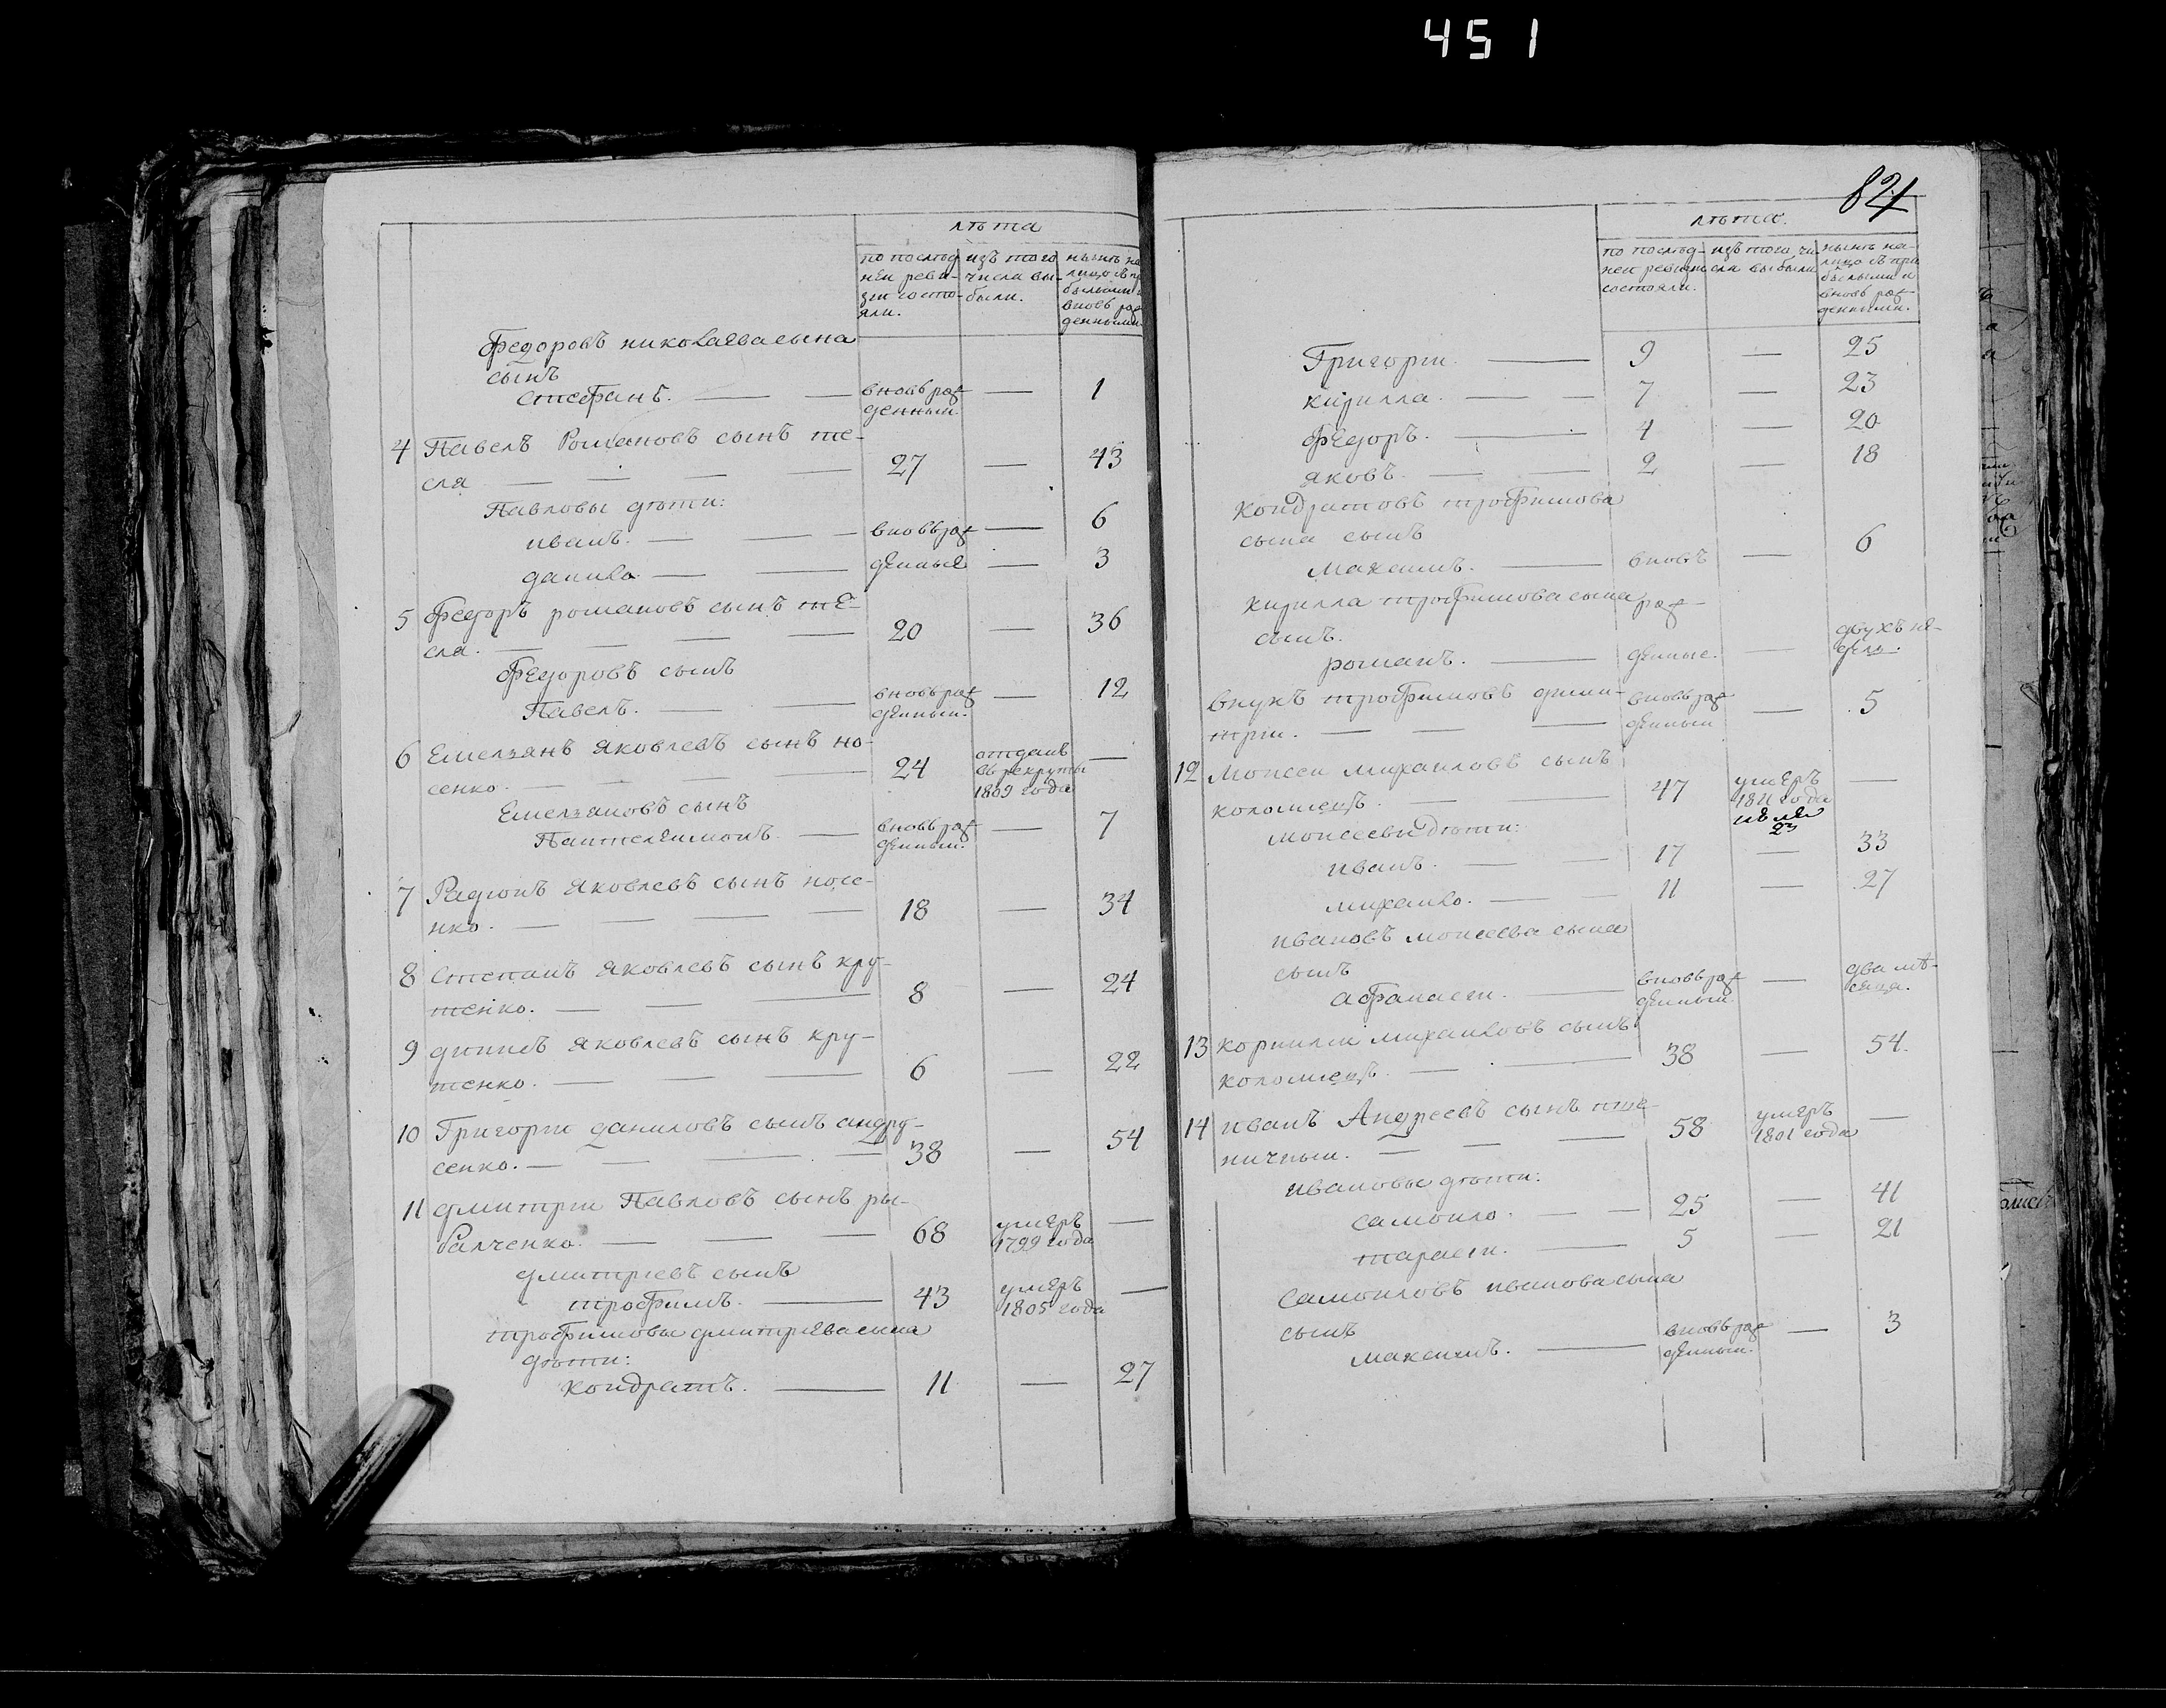 451
лѣта
по послѣд- изъ того нынѣ на
ней реви- числа вы- лицо съ пр
зіи состо- были. былыми и
яли. вновь рож
денными.
Федоровъ николаева сына
сынъ
стефанъ. вновь рож — 1
денный.
4 Павелъ Романовъ сынъ те-
сля 27 — 43
Павловы дѣти:
иванъ. вновь рож — 6
данило денные — 3
5 Федоръ романовъ сынъ те-
сля. 20 — 36
Федоровъ сынъ
Павелъ. вновь рож — 12
денный.
6 Емельянъ яковлевъ сынъ но- отданъ
сенко. 24 въ рекруты —
1809 года
Емельяновъ сынъ
Пантелеимонъ. вновь рож — 7
денный.
7 Радионъ яковлевъ сынъ носе-
нко. 18 — 34
8 степанъ яковлевъ сынъ кру-
тенко. 8 — 24
9 денисъ яковлевъ сынъ кру-
тенко. 6 — 22
10 Григорий даниловъ сынъ андру-
сенко. 38 — 54
11 дмитрий Павловъ сынъ ры-
балченко. 68 умеръ —
1799 года
дмитриевъ сынъ
трофимъ. 43 умеръ —
1805 года
трофимовы дмитриева сына
дѣти:
кондратъ. 11 — 27
82
лѣта.
по послѣд- изъ того чи- нынѣ на-
ней ревизіи сла выбыли лицо съ при
состояли. былыми и
вновь рож
денными.
Григорий. 9 — 25
кирилла. 7 — 23
федоръ. 4 — 20
яковъ. 2 — 18
кондратовъ трофимова
сына сынъ
максимъ. вновь — 6
кирилла трофимова сына рож
сынъ. двухъ не-
романъ. денные. — дель.
внукъ трофимовъ дими- вновь рож — 5
трий. денный
12 моисей михаиловъ сынъ
коломиецъ. 47 умеръ —
1811 года
июля
23
моисеевы дѣти:
иванъ. 17 — 33
михайло. 11 — 27
ивановъ моисеева сына
сынъ вновь рож — два мѣ-
афанасий. денный. сяца.
13 корнилий михаиловъ сынъ
коломиецъ. 38 — 54.
14 иванъ Андреевъ сынъ пше-
ничный. 58 умеръ —
1801 года
ивановы дѣти:
самойло. 25 — 41
тарасий. 5 — 21
самойловъ иванова сына
сынъ вновь рож — 3
максимъ. денный.